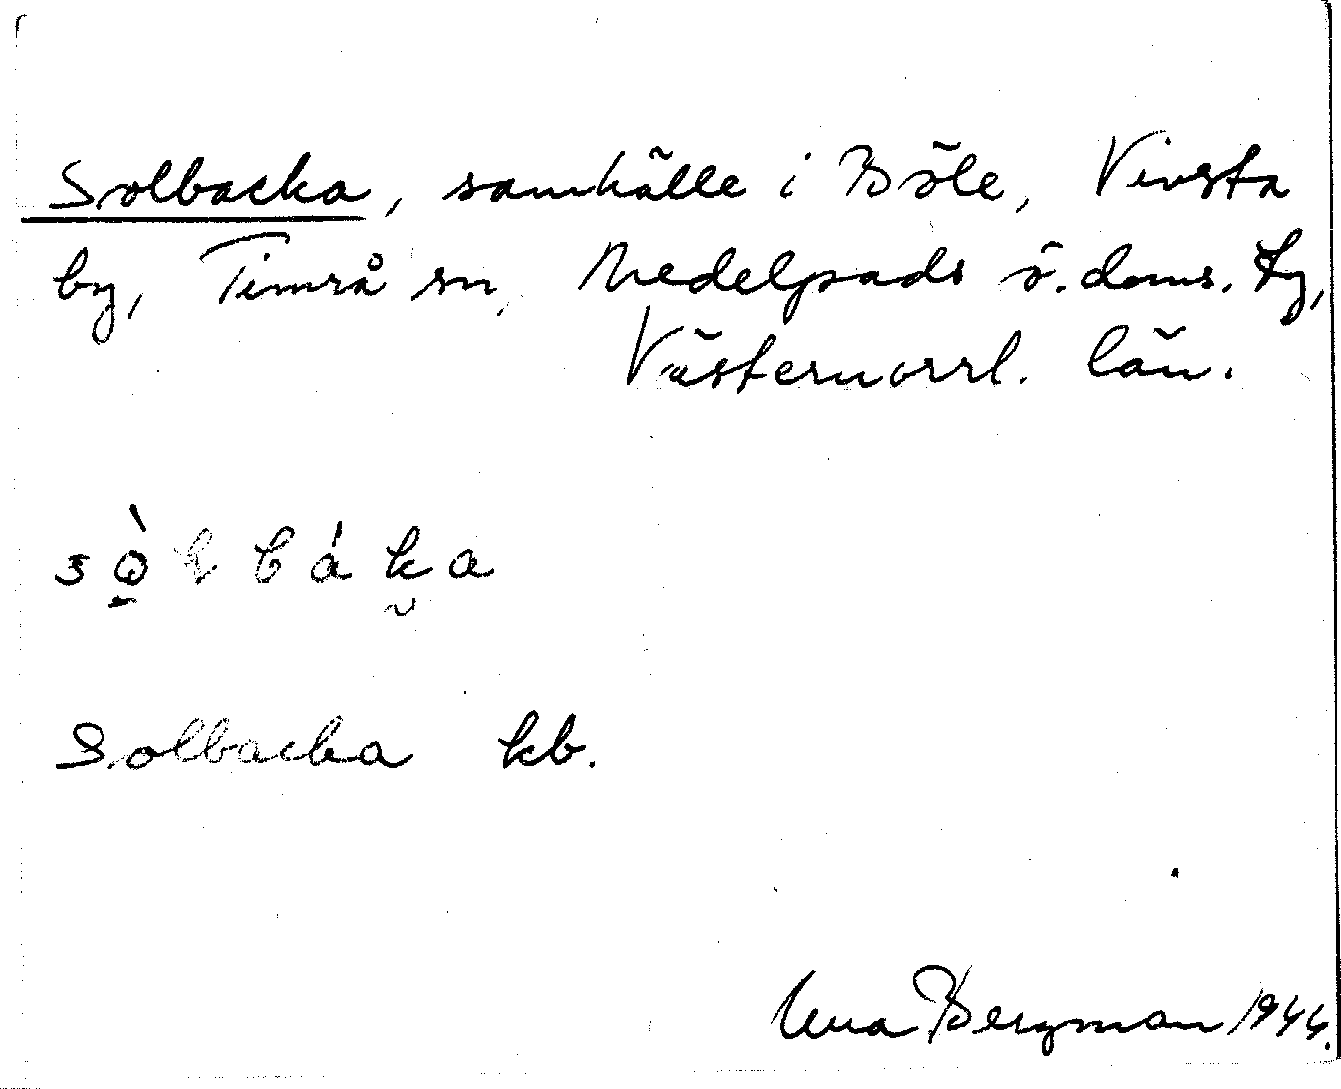 Solbacka, samhälle i Böle, Vivsta
by, Timrå sn, Medelpads ö. doms. tg,
Västernorrl. län.
sò̱lbák̮a
Solbacka kb.
Bergman 1944.